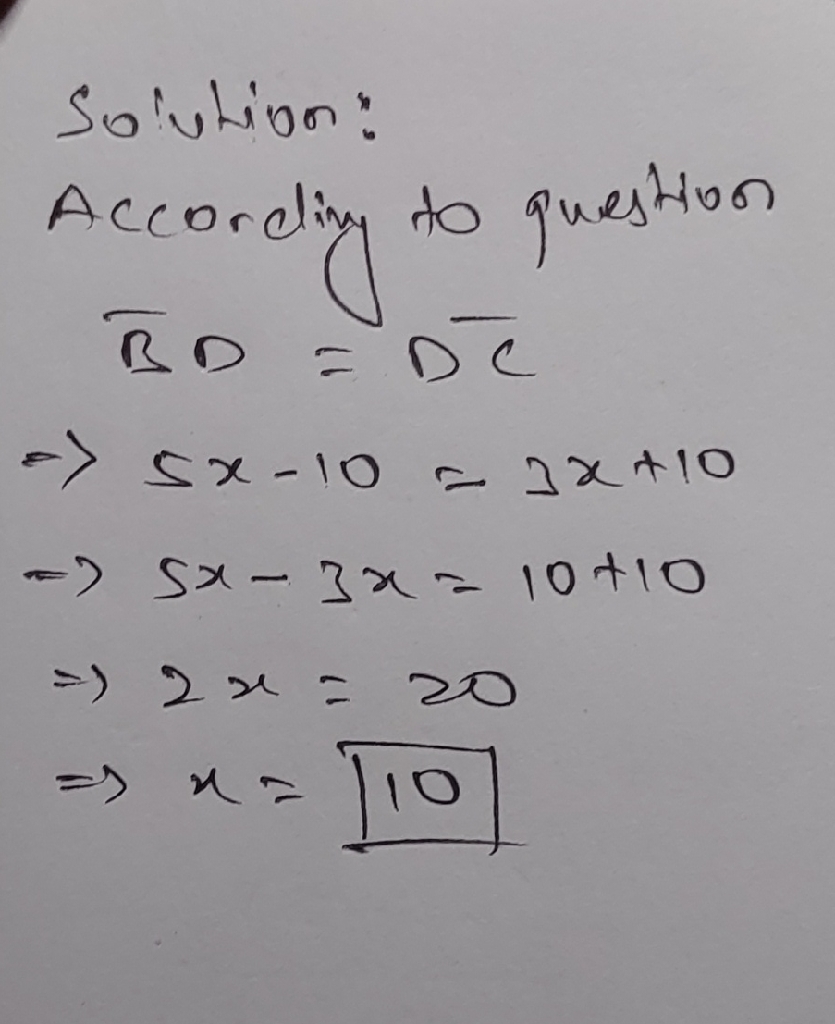 Solution:
According to question
B̅D = DC̅
=> 5x - 10 = 3x + 10
=> 5x - 3x = 10 + 10
=> 2x = 20
=> x = 10